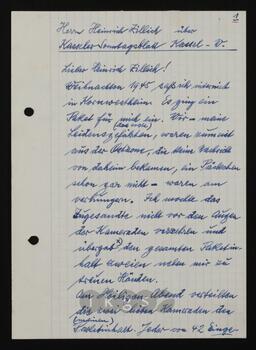 1
Herrn Heinrich Zillich über
Kasseler Sonntagsblatt Kassel - W.
Lieber Heinrich Zillich!
Weihnachten 1945, saß ich interniert
in Kornwestheim. Es ging ein
Paket für mich ein. Wir - meine
(das erste)
Leidensgefährten, waren zumeist
aus der Ostzone, die kein Nachricht
von daheim bekamen, ein Päckchen
schon gar nicht - waren am
verhungern. Ich mochte das
Eingesandte nicht vor den Augen
der Kameraden verzehren und
übergab den gesamten Paketin-
halt zweien neben mir zu
treuen Händen.
Am Heiligen Abend verteilten
die zwei lieben Kameraden den
(meinen)
Paketinhalt. Jeder von 42 Einge-